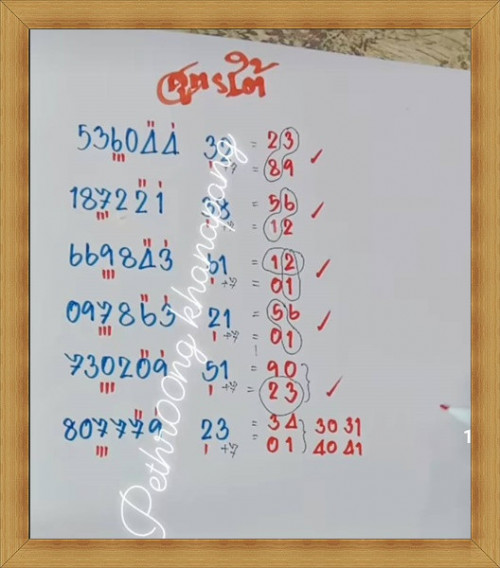 สูตรใต้
536044 = 23
= 89
187221 = 56
= 12
669843 61 = 12
+7 = 01
097863 21 = 56
+7 = 01
730209 51 = 90
+7 = 23
807779 23 = 34 30 31
+7 = 01 40 41
Pethroong khanapang
1